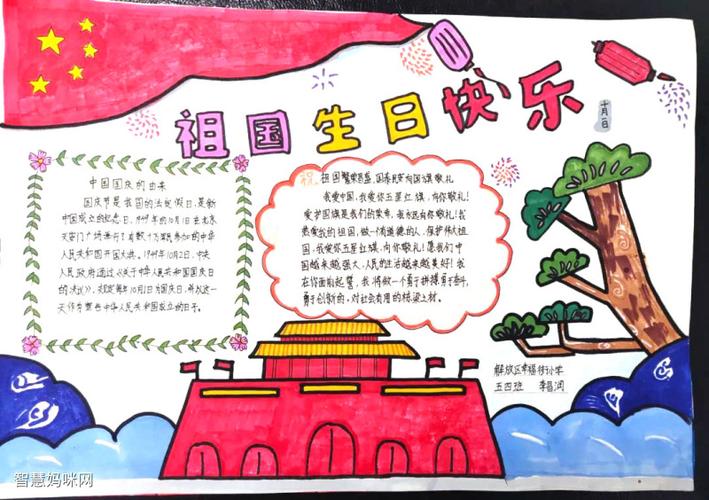 祖国生日快乐
十月一日
中国国庆的由来
国庆节是我国的法定假日,是新
中国成立的纪念日,1949年的10月1日在北京
天安门广场举行了有数十万军民参加的中华
人民共和国开国大典。1949年10月2日,中央
人民政府通过《关于中华人民共和国国庆日
的决议》,规定每年10月1日为国庆日,并以这一
天作为宣告中华人民共和国成立的日子。
祝祖国繁荣昌盛,国泰民安 向国旗敬礼
我爱中国,我爱你五星红旗,向你敬礼!
爱护国旗是我们的责任,我永远向你敬礼!我
热爱我的祖国,做一个有道德的人,保护伟大祖
国,我爱你五星红旗,向你敬礼!愿我们中
国越来越强大,人民的生活越来越美好!我
在你面前起誓,我将做一个勇于拼搏勇于奋斗,
勇于创新的,对社会有用的栋梁之材。
解放区幸福街小学
五四班 李昌润
智慧妈咪网